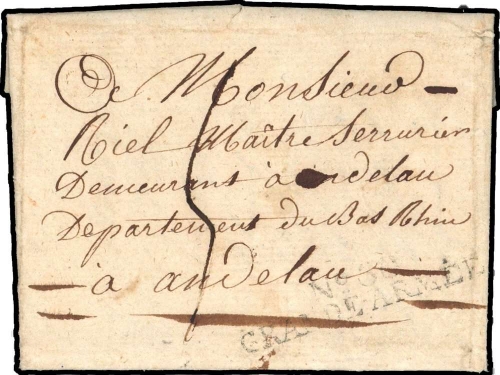 A Monsieur
Riel Maître Serrurier
Demeurant à andelau
Departement du Bas Rhin
à andelau
5
No
GRANDE ARMÉE